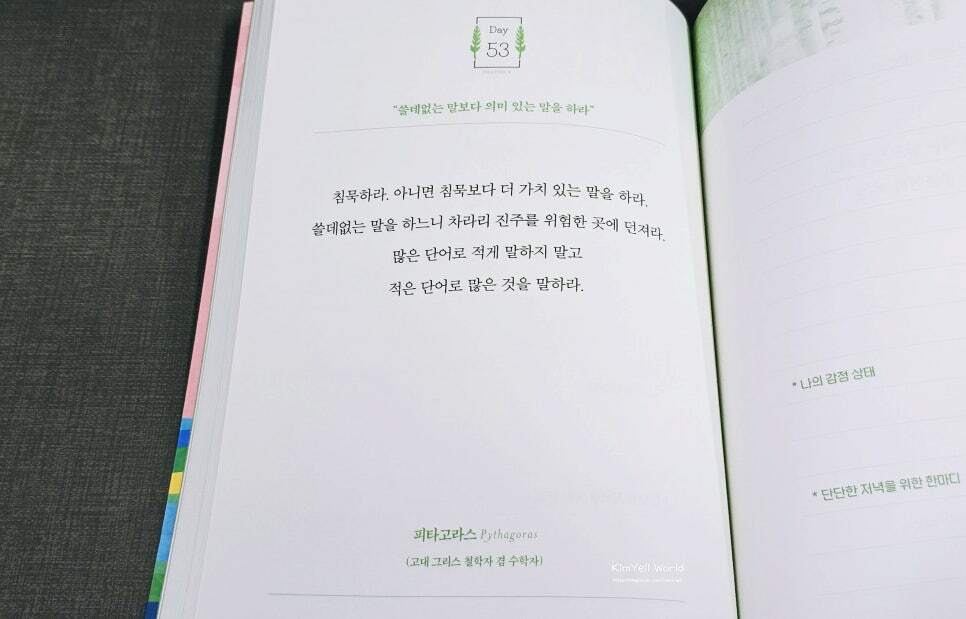 Day
53
"쓸데없는 말보다 의미 있는 말을 하라"
침묵하라. 아니면 침묵보다 더 가치 있는 말을 하라.
쓸데없는 말을 하느니 차라리 진주를 위험한 곳에 던져라.
많은 단어로 적게 말하지 말고
적은 단어로 많은 것을 말하라.
피타고라스 Pythagoras
(고대 그리스 철학자 겸 수학자)
KimYell World
* 나의 감정 상태
* 단단한 저녁을 위한 한마디